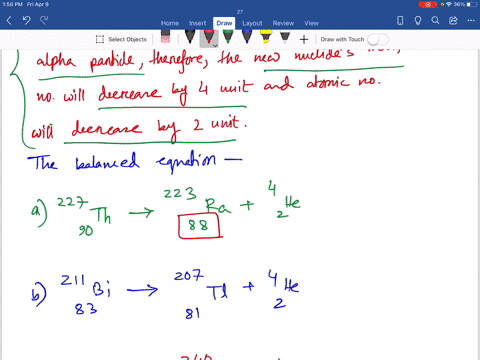 1:56 PM Fri Apr 9
36%
27
Home Insert Draw Layout Review View
Select Objects
Draw with Touch
alpha particle, therefore, the new nuclide's
no. will decrease by 4 unit and atomic no.
will decrease by 2 unit.
The balanced equation —
a) ²²⁷₉₀Th → ²²³₈₈Ra + ⁴₂He
b) ²¹¹₈₃Bi → ²⁰⁷₈₁Tl + ⁴₂He